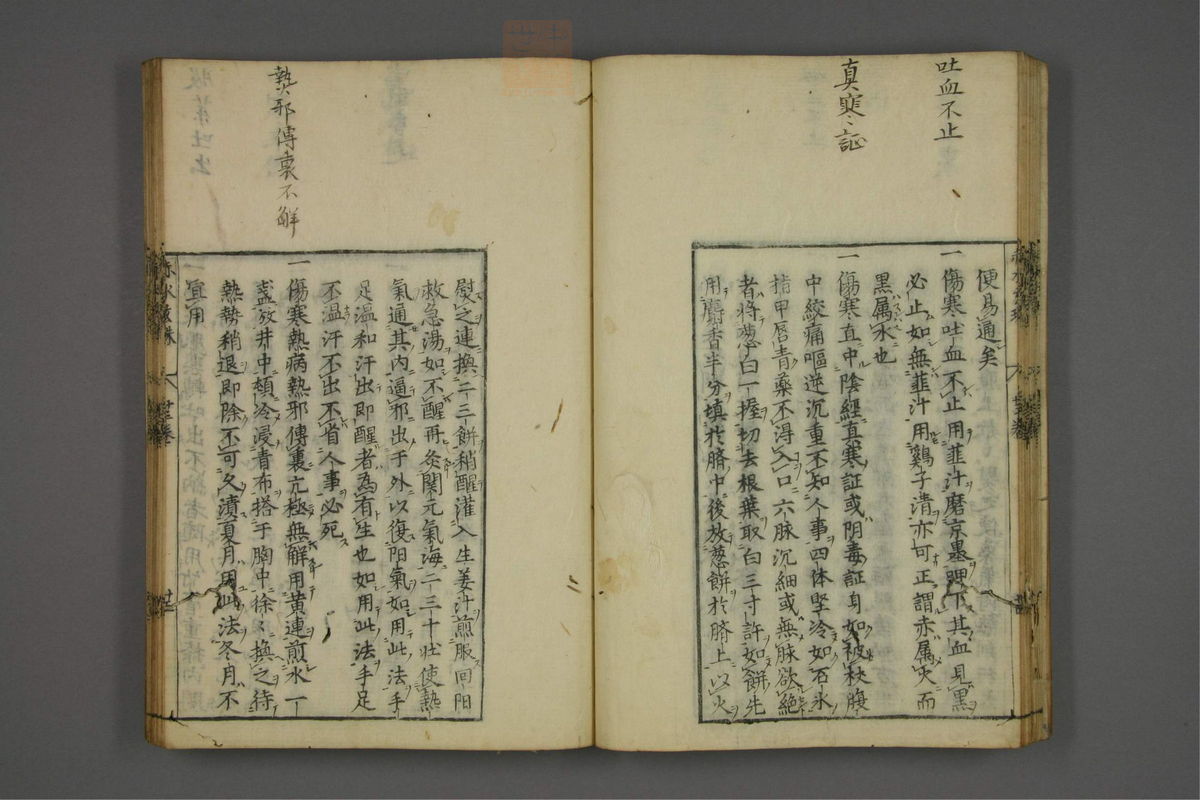 吐血不止
真寒証
便易通矣
一傷寒吐血不止用韮汁磨京墨呷下其血見黒
必止如無韮汁用鷄子清亦可正謂赤属火而
黒属水也
一傷寒直中陰經真寒証或阴毒証身如被杖腹
中絞痛嘔逆沉重不知人事四体堅冷如石氷
指甲唇青藥不得入口六脉沉細或無脉欲絶
者将葱白一握切去根葉取白三寸許如餅先
用麝香半分填於臍中後放葱餅於臍上以火
熱邪傳裏不解
熨之連換二三餅稍醒灌入生姜汁煎服回阳
救急湯如不醒再灸関元氣海二三十壮使熱
氣通其内逼邪出于外以復阳氣如用此法手
足温和汗出即醒者為有生也如用此法手足
不温汗不出不省人事必死
一傷寒熱病熱邪傳裏亢極無解用黄連煎水一
盞放井中頓冷浸青布搭于胸中徐々換之待
熱勢稍退即除不可久漬夏月用此法冬月不
宜用